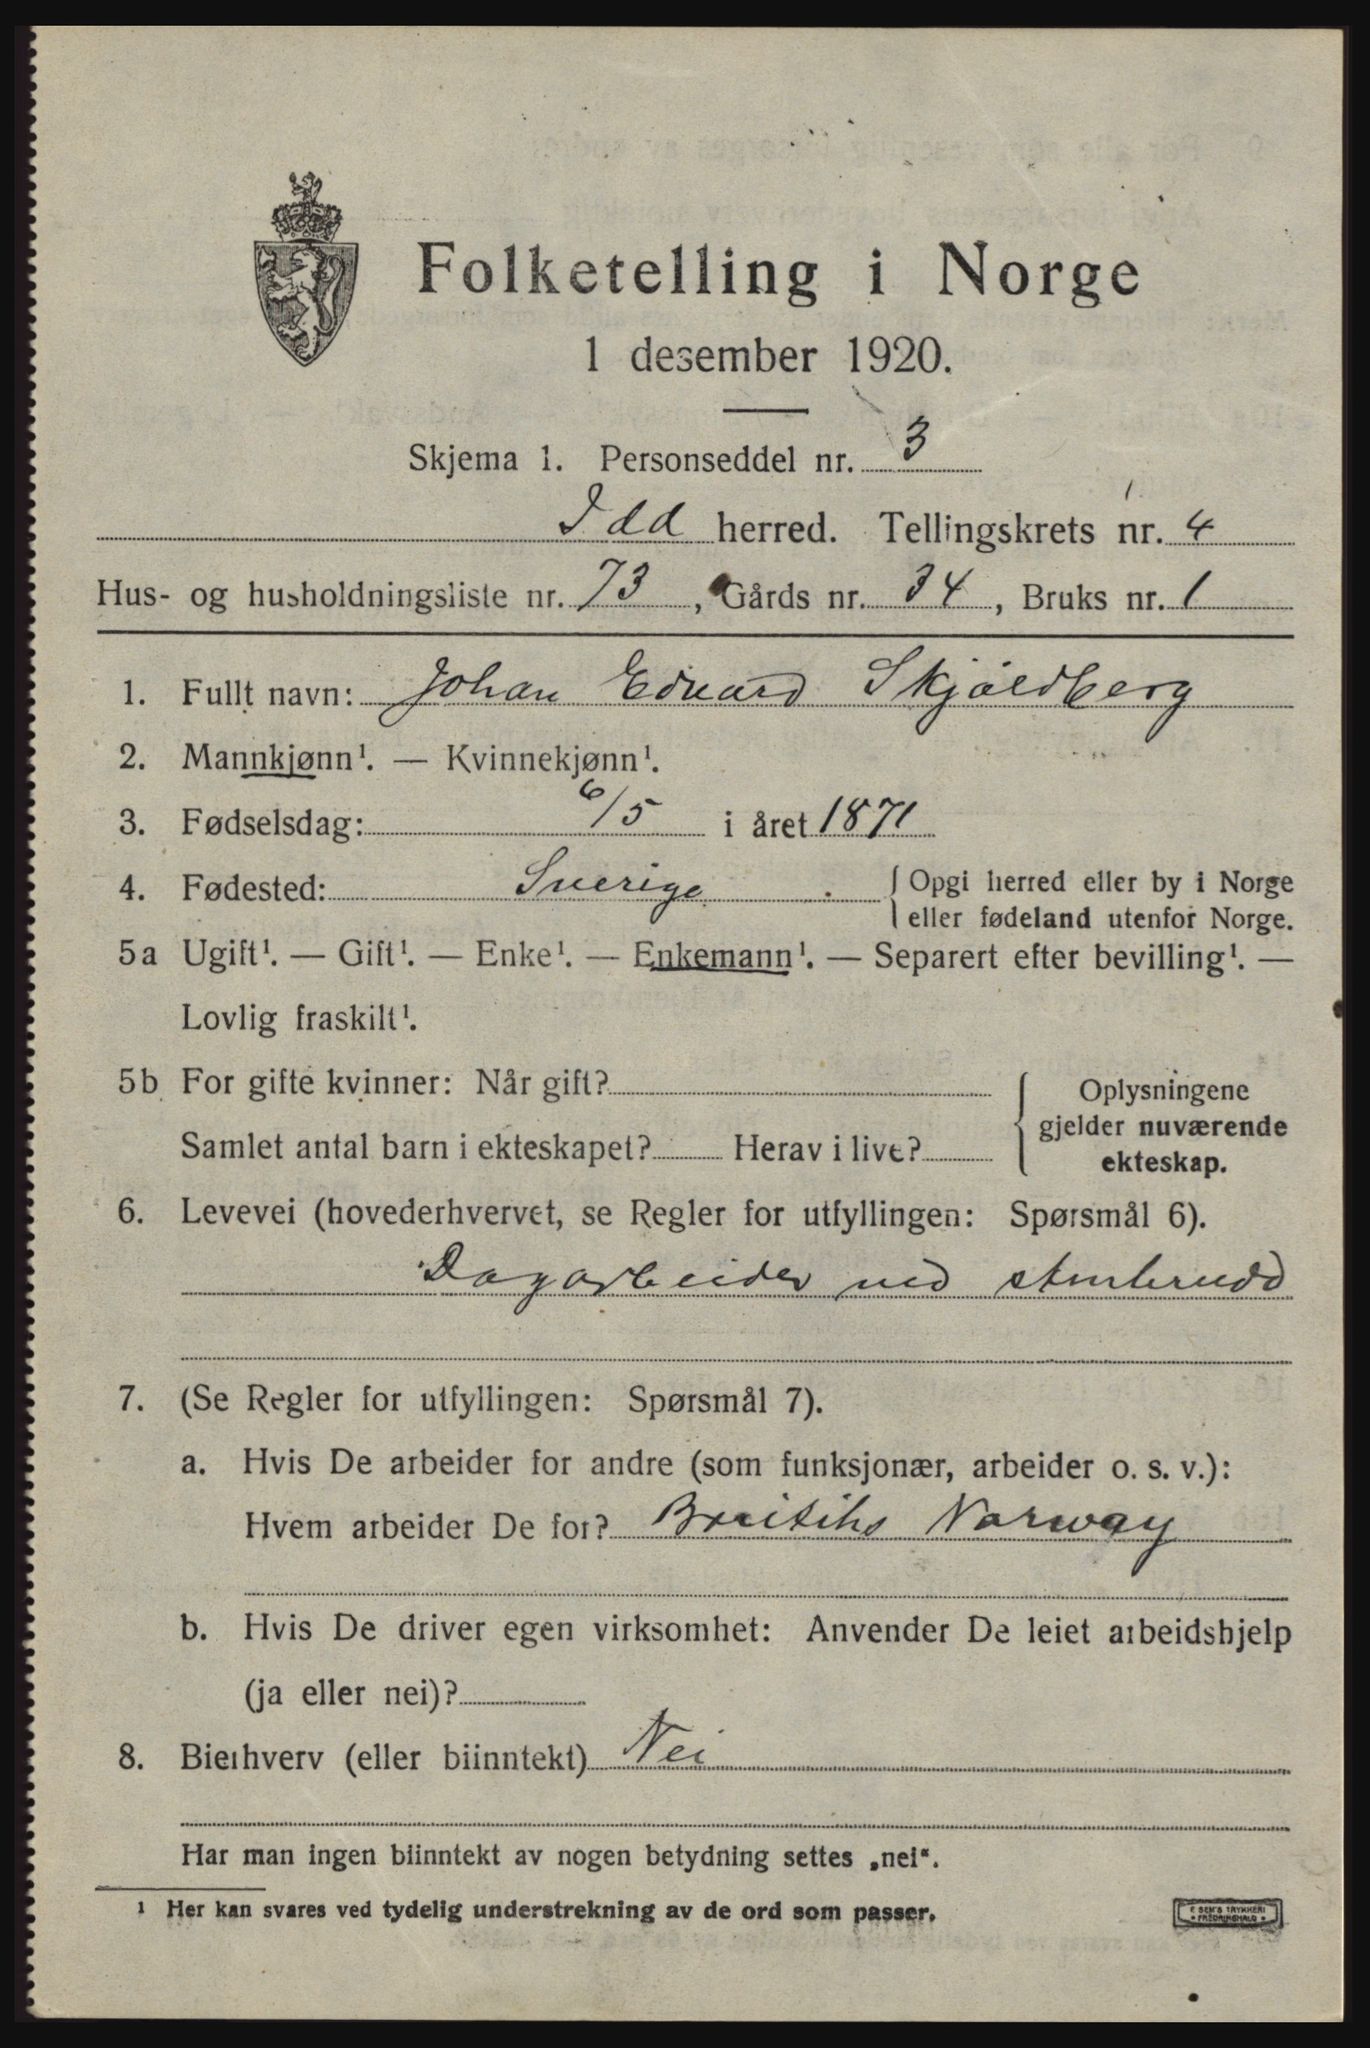 Folketelling i Norge
1 desember 1920.
Skjema 1. Personseddel nr. 3
Idd herred. Tellingskrets nr. 4
Hus- og husholdningsliste nr. 73, Gårds nr. 34, Bruks nr. 1
1. Fullt navn: Johan Edvard Skjöldberg
2. Mannkjønn¹. — Kvinnekjønn¹.
3. Fødselsdag: 6/5 i året 1871
4. Fødested: Sverige { Opgi herred eller by i Norge
eller fødeland utenfor Norge.
5a Ugift¹. — Gift¹. — Enke¹. — Enkemann¹. — Separert efter bevilling¹. —
Lovlig fraskilt¹.
5b For gifte kvinner: Når gift? { Oplysningene
gjelder nuværende
Samlet antal barn i ekteskapet? Herav i live?
ekteskap.
6. Levevei (hovederhvervet, se Regler for utfyllingen: Spørsmål 6).
Dagarbeider ved stenbrudd
7. (Se Regler for utfyllingen: Spørsmål 7).
a. Hvis De arbeider for andre (som funksjonær, arbeider o. s. v.):
Hvem arbeider De for? Breitihs Norway
b. Hvis De driver egen virksomhet: Anvender De leiet arbeidshjelp
(ja eller nei)?
8. Bierhverv (eller biinntekt) Nei
Har man ingen biinntekt av nogen betydning settes „nei“.
¹ Her kan svares ved tydelig understrekning av de ord som passer.
E SEM'S TRYKKERI
• FREDRIKSHALD •